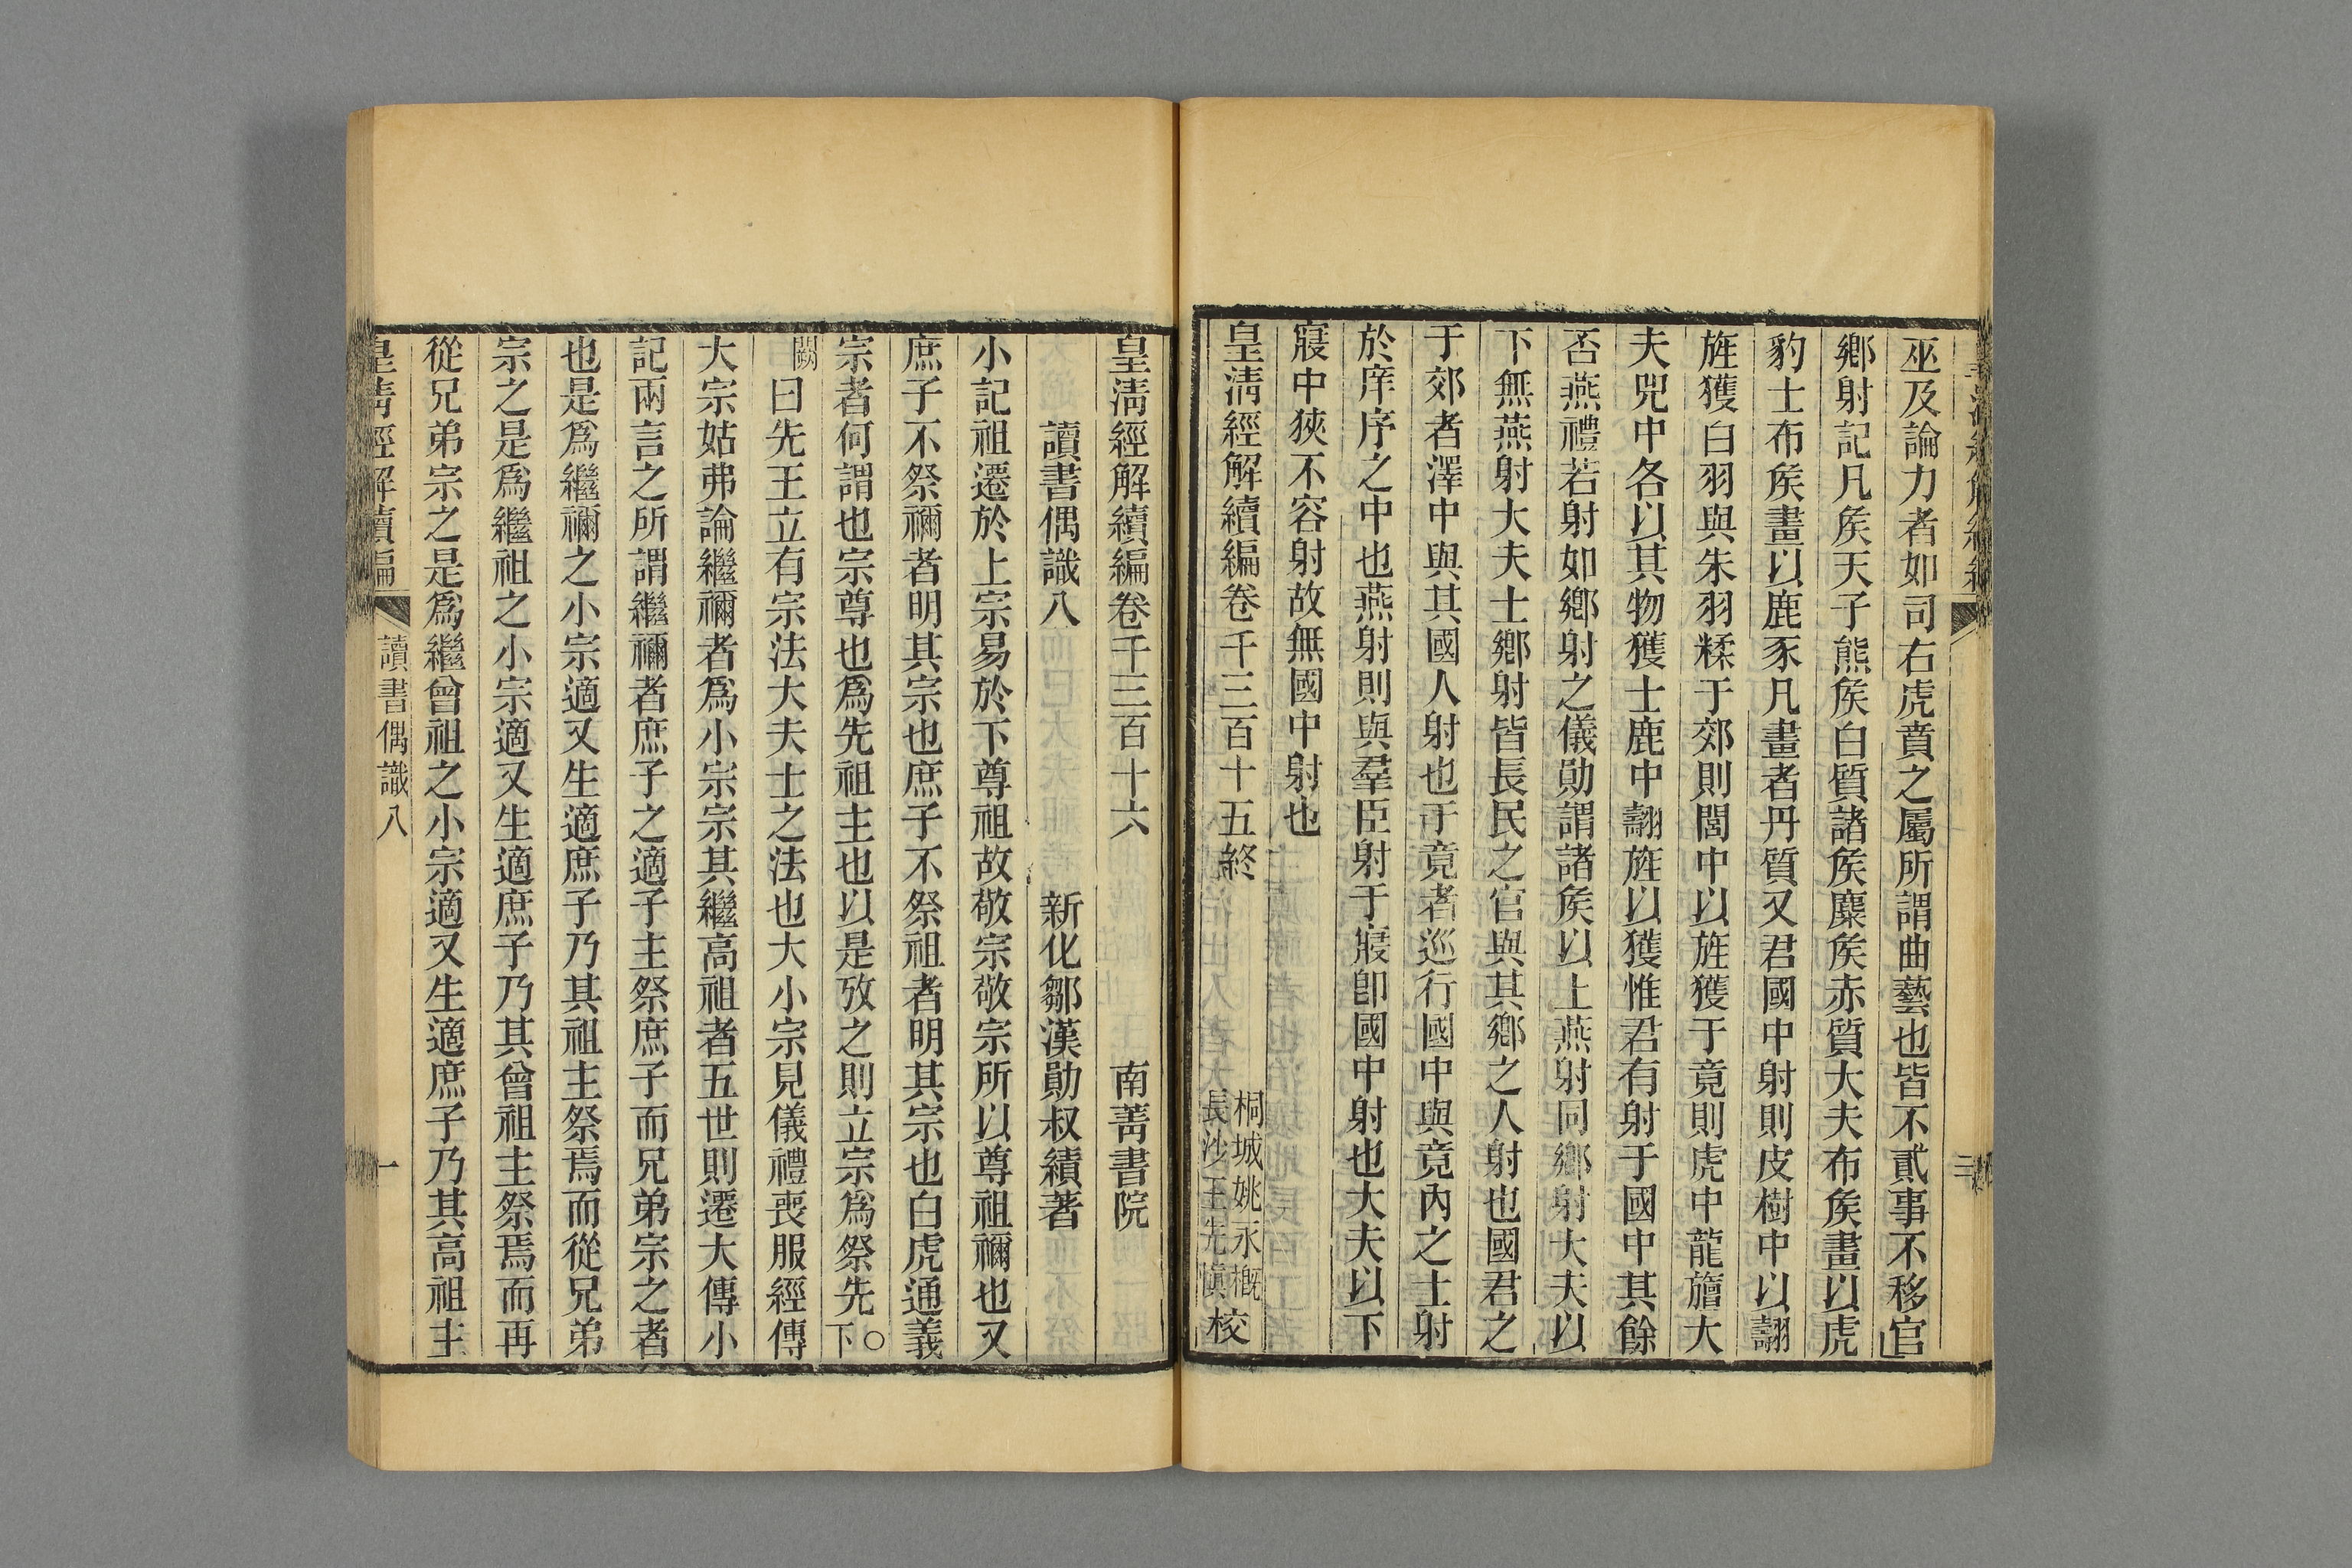 巫及論力者如司右虎賁之屬所謂曲藝也皆不貳事不移官
鄉射記凡矦天子熊矦白質諸矦麋矦赤質大夫布矦畫以虎
豹士布矦畫以鹿豕凡畫者丹質又君國中射則皮樹中以翿
旌獲白羽與朱羽糅于郊則閭中以旌獲于竟則虎中龍旜大
夫兕中各以其物獲士鹿中翿旌以獲惟君有射于國中其餘
否燕禮若射如鄉射之儀勛謂諸矦以上燕射同鄉射大夫以
下無燕射大夫士鄉射皆長民之官與其鄉之人射也國君之
于郊者澤中與其國人射也于竟者巡行國中與竟內之士射
於庠序之中也燕射則與羣臣射于寢卽國中射也大夫以下
寢中狹不容射故無國中射也
皇淸經解續編卷千三百十五終
桐城姚永概
長沙王先愼
校
皇淸經解續編卷千三百十六
南菁書院
讀書偶識八
新化鄒漢勛叔績著
小記祖遷於上宗易於下尊祖故敬宗敬宗所以尊祖禰也又
庶子不祭禰者明其宗也庶子不祭祖者明其宗也白虎通義
宗者何謂也宗尊也爲先祖主也以是攷之則立宗爲祭先○下
闕曰先王立有宗法大夫士之法也大小宗見儀禮喪服經傳
大宗姑弗論繼禰者爲小宗宗其繼高祖者五世則遷大傳小
記兩言之所謂繼禰者庶子之適子主祭庶子而兄弟宗之者
也是爲繼禰之小宗適又生適庶子乃其祖主祭焉而從兄弟
宗之是爲繼祖之小宗適又生適庶子乃其曾祖主祭焉而再
從兄弟宗之是爲繼曾祖之小宗適又生適庶子乃其高祖主
皇淸經解續編
讀書偶識八
一